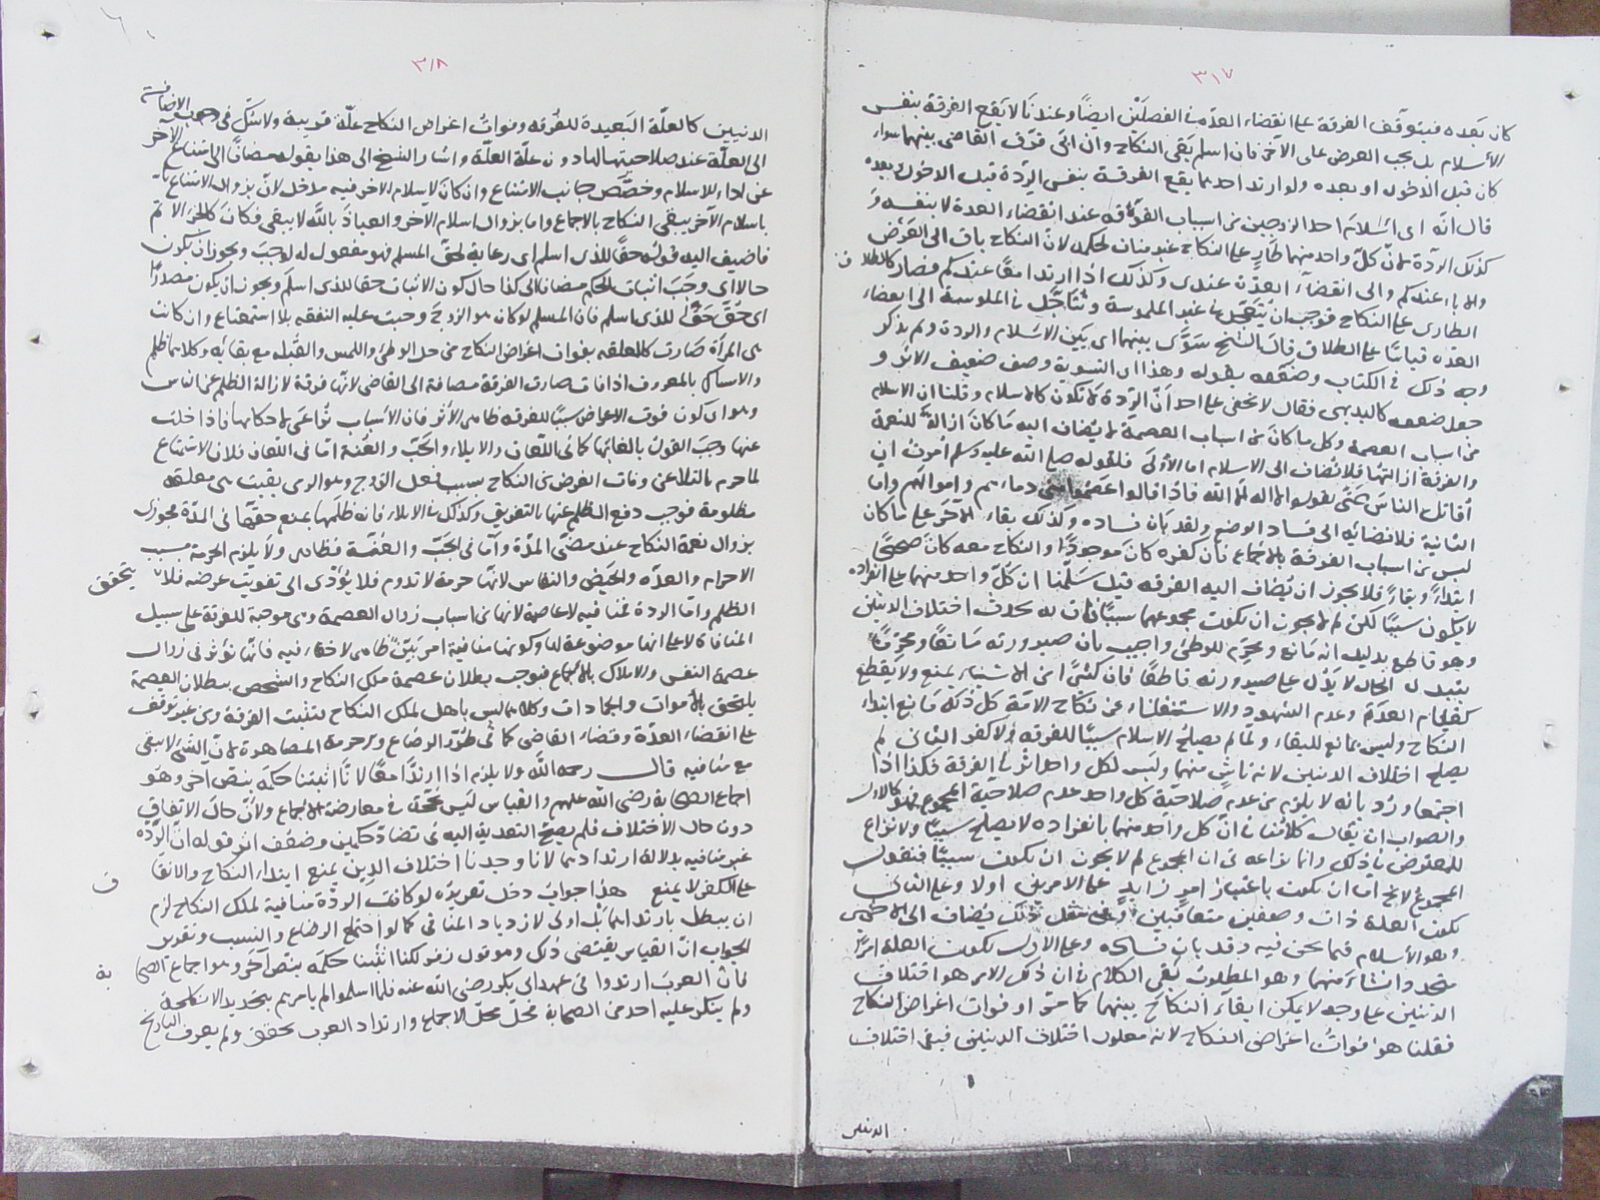 ٣١٧
كان بعده فيتوقف الفرقة على انقضاء العدة في الفصلين ايضا وعندنا لا يقع الفرقة بنفس
الاسلام بل يجب العرض على الآخر فان اسلم بقي النكاح وان ابى فرق القاضي بينهما سواء
كان قبل الدخول او بعده ولو ارتد احدهما يقع الفرقة بنفس الردة قبل الدخول وبعده
قال انه اى اسلام احد الزوجين من اسباب الفرقة عند انقضاء العدة لا بنفسه و
كذلك الردة لان كل واحد منهما طار على النكاح غير مناف لحكمه لان النكاح باق الى العرض
والاباء عندكم والى انقضاء العدة عندى وكذلك اذا ارتدا معا عندكم فصار كالطلاق
الطارى على النكاح فوجب ان يتعجل في غير الملموسة ويتاجل في الملموسة الى انقضاء
العدة قياسا على الطلاق قال الشيخ سوى بينهما اى بين الاسلام والردة ولم يذكر
وجه ذلك في الكتاب وضعفه بقوله وهذا اى التسوية وصف ضعيف الاثر و
جعل ضعفه كالبديهى فقال لا يخفى على احد ان الردة لا تكون كالاسلام وقلنا ان الاسلام
من اسباب العصمة وكل ما كان من اسباب العصمة لا يضاف اليه ما كان ازالة للنعمة
والفرقة ازالتها فلا يضاف الى الاسلام اما الاولى فلقوله صلى الله عليه وسلم أمرت ان
أقاتل الناس حتى يقولوا لا اله الا الله فاذا قالوا عصموا منى دماءهم واموالهم واما
الثانية فلافضائه الى فساد الوضع ولقد بان فساده وكذلك بقاء الآخر على ما كان
ليس من اسباب الفرقة بالاجماع فان كفره كان موجودا والنكاح معه كان صحيحا
ابتداء وبقاء فلا يجوز ان يضاف اليه الفرقة قيل سلمنا ان كل واحد منهما على انفراده
لا يكون سببا لكن لم لا يجوز ان يكون مجموعهما سببا فان به يحدث اختلاف الدينين
وهو قاطع بدليل انه مانع ومحرم للوطئ واجيب بان صيرورته مانعا ومحرما
بتبدل الحال لا يدل على صيرورته قاطعا فان كثيرا من الاشياء يمنع ولا يقطع
كقيام العدة وعدم الشهود والاستغناء عن نكاح الامة كل ذلك مانع ابتداء
النكاح وليس بمانع للبقاء ولما لم يصلح الاسلام سببا للفرقة ولا كفر الثانى لم
يصلح اختلاف الدينين لانه ناش منهما وليس لكل واحد اثر في الفرقة فكذا اذا
اجتمعا ورد بانه لا يلزم من عدم صلاحية كل واحد عدم صلاحية المجموع فهو كالاول
والصواب ان يقال كلامنا في ان كل واحد منهما بانفراده لا يصلح سببا ولا نزاع
للمعترض في ذلك وانما نزاعه في ان المجموع لم لا يجوز ان يكون سببا فنقول
المجموع لا يخ اما ان يكون باعتبار امر زايد على الامرين اولا وعلى الثانى
تكون العلة ذات وصفين متعاقبين وفى مثل ذلك يضاف الى الاخير
وهو الاسلام فيما نحن فيه وقد بان فساده وعلى الاول تكون العلة امرا
متحددا ناشئا منهما وهو المطلوب بقى الكلام في ان ذلك الامر هو اختلاف
الدينين على وجه لا يمكن ابقاء النكاح بينهما كما مر او فوات اغراض النكاح
فقلنا هو فوات اغراض النكاح لانه معلول اختلاف الدينين فبقى اختلاف
الدينين
٣١٨
الدينين كالعلة البعيدة للفرقة وفوات اغراض النكاح علة قريبة ولا شك في وجوب الاضافة
الى العلة عند صلاحيتها لها دون علة العلة واشار الشيخ الى هذا بقوله مضافا الى امتناع الآخر
عن اداء الاسلام وخصص جانب الامتناع وان كان لاسلام الآخر فيه مدخل لان بزوال الامتناع
باسلام الآخر يبقى النكاح بالاجماع واما بزوال اسلام الآخر والعياذ بالله لا يبقى فكان كالجزء الاتم
فاضيف اليه قوله حقا للذى اسلم اى رعاية لحق المسلم فهو مفعول له لوجب ويجوز ان يكون
حالا اى وجب اثبات الحكم مضافا الى كذا حال كون الاثبات حقا للذى اسلم ويجوز ان يكون مصدرا
اى حق حقا للذى اسلم فان المسلم لو كان هو الزوج وجبت عليه النفقة بلا استمتاع وان كانت
هى المرأة صارت كالمعلقة بفوات اغراض النكاح من حل الوطئ واللمس والقبلة مع بقائه وكلاهما ظلم
والامساك بالمعروف اذا فات صارت الفرقة مضافة الى القاضى لانها فرقة لازالة الظلم عن الناس
وهو اى كون فوت الاعراض سببا للفرقة ظاهر الأثر فان الأسباب تراعى لاحكامها فاذا خلت
عنها وجب القول بالغائها كما في اللعان والايلاء والجب والعنة اما في اللعان فلان الاستمتاع
لما حرم بالتلاعن وفات الغرض من النكاح بسبب فعل الزوج وهو الرمى بقيت هى معلقة
مظلومة فوجب دفع الظلم عنها بالتفريق وكذلك في الايلاء فانه ظلمها بمنع حقها في المدة فجوزى
بزوال نعمة النكاح عند مضى المدة واما في الجب والعنة فظاهر ولا يلزم الحرمة بسبب
الاحرام والعدة والحيض والنفاس لانها حرمة لا تدوم فلا يؤدى الى تفويت غرضه فلا يتحقق
الظلم واما الردة فمنافيه لا عاصمة لانها من اسباب زوال العصمة وهى موجبة للفرقة على سبيل
المنافاة لا على انها موضوعة لها وكونها منافية امر بين ظاهر لا خفاء فيه فانها تؤثر في زوال
عصمة النفس والاملاك بالاجماع فيوجب بطلان عصمة ملك النكاح والشخص ببطلان العصمة
يلتحق بالاموات والجمادات وكلاهما ليس باهل لملك النكاح فتثبت الفرقة من غير توقف
على انقضاء العدة وقضاء القاضى كما في طرو الرضاع وحرمة المصاهرة لان الشئ لا يبقى
مع منافيه قال رحمه الله ولا يلزم اذا ارتدا معا لانا اثبتنا حكمه بنص آخر وهو
اجماع الصحابة رضى الله عنهم والقياس ليس بحجة في معارضة الاجماع ولان حال الاتفاق
دون حال الاختلاف فلم يصح التعدية اليه في تضاد حكمين وضعف اثر قوله ان الردة
غير منافيه بدلالة ارتدادهما لانا وجدنا اختلاف الدين يمنع ابتداء النكاح والاتفاق
على الكفر لا يمنع هذا جواب دخل تقريره لو كانت الردة منافية لملك النكاح لزم
ان يبطل بارتدادهما بل اولى لازدياد المنافى كما لو اجتمع الرضاع والنسب وتقرير
الجواب ان القياس يقتضى ذلك وهو قول زفر لكنا اثبتنا حكمه بنص آخر وهو اجماع الصحابة
فان العرب ارتدوا في عهد ابى بكر رضى الله عنه فلما اسلموا لم يأمرهم بتجديد الانكحة
ولم ينكر عليه احد من الصحابة فحل محل الاجماع وارتداد العرب تحقق ولم يعرف التاريخ